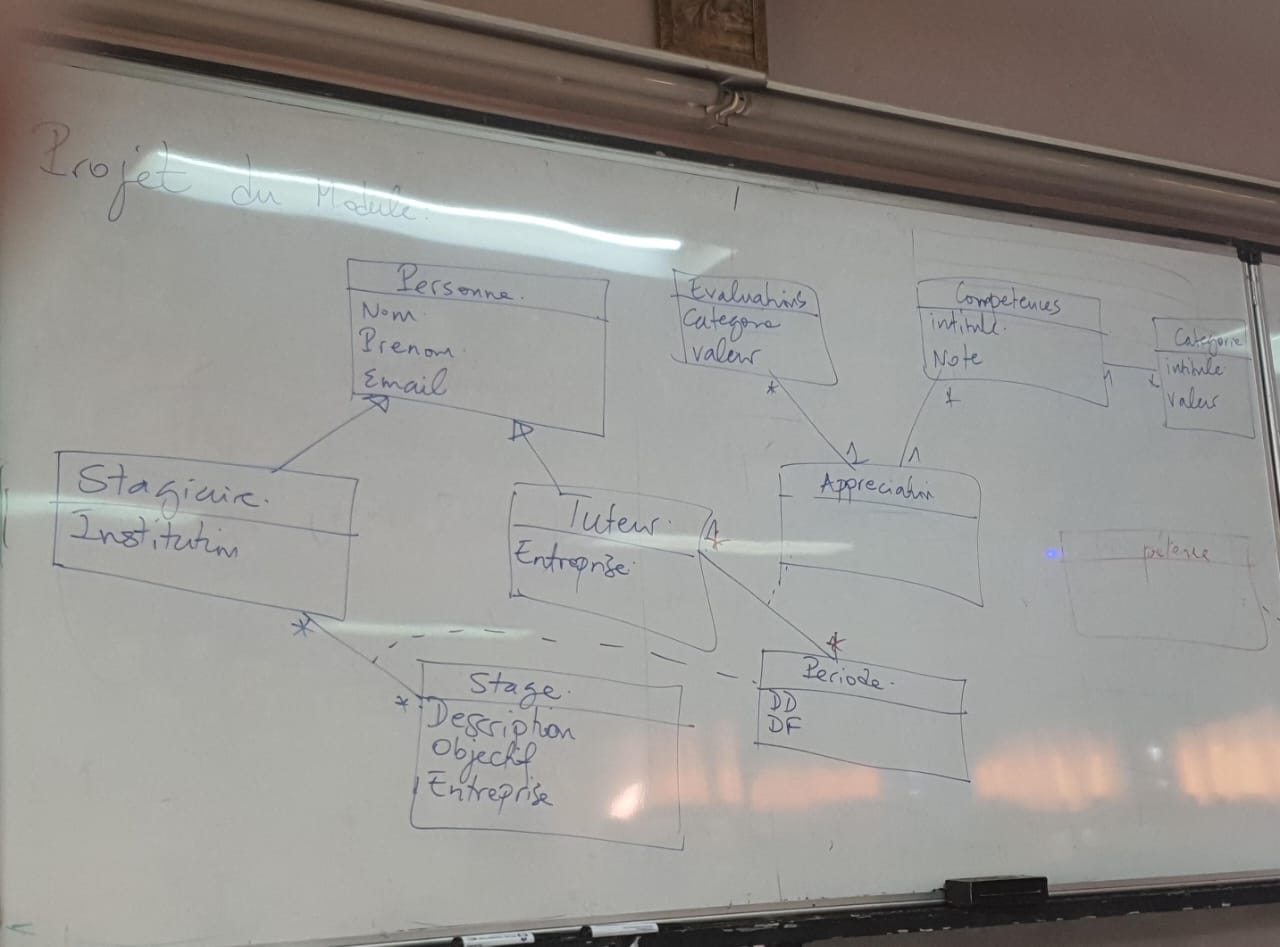 Projet du Module.
Personne.
Nom.
Prenom.
Email
Evaluations
Categorie
valeur
Competences
intitule.
Note
Categorie
intitule
Valeur
*
1
*
1
1
Stagiaire.
Institution
Tuteur.
Entreprise.
Appreciation
*
*
*
Stage.
Description
Objectif
Entreprise
Periode.
DD
DF